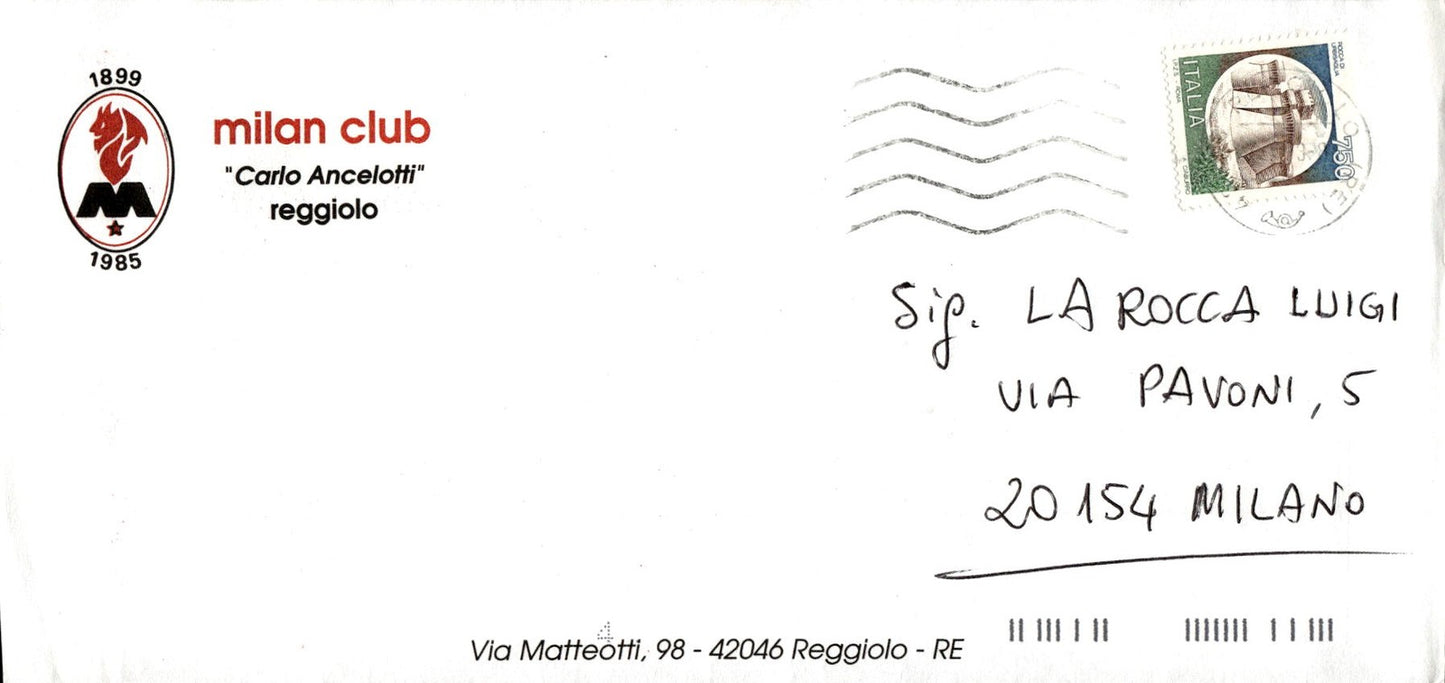 1899
milan club
"Carlo Ancelotti"
reggiolo
M
1985
ROCCA DI URBISAGLIA
ITALIA
750
Sig. LA ROCCA LUIGI
VIA PAVONI, 5
20154 MILANO
4
Via Matteotti, 98 - 42046 Reggiolo - RE